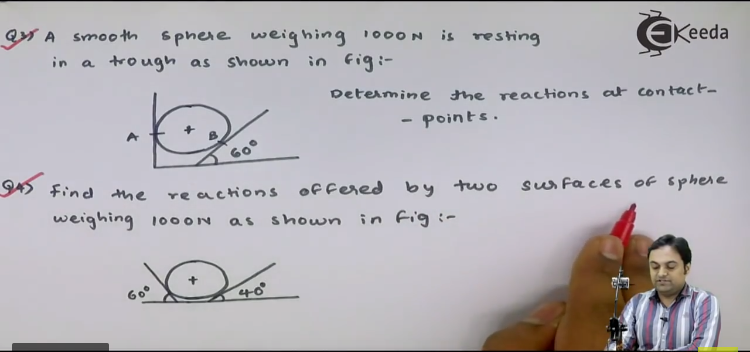 Q3) A smooth sphere weighing 1000N is resting
in a trough as shown in fig:-
Determine the reactions at contact-
- points.
A
B
60°
Q4) Find the reactions offered by two surfaces of sphere
weighing 1000N as shown in fig:-
60°
40°
Ekeeda